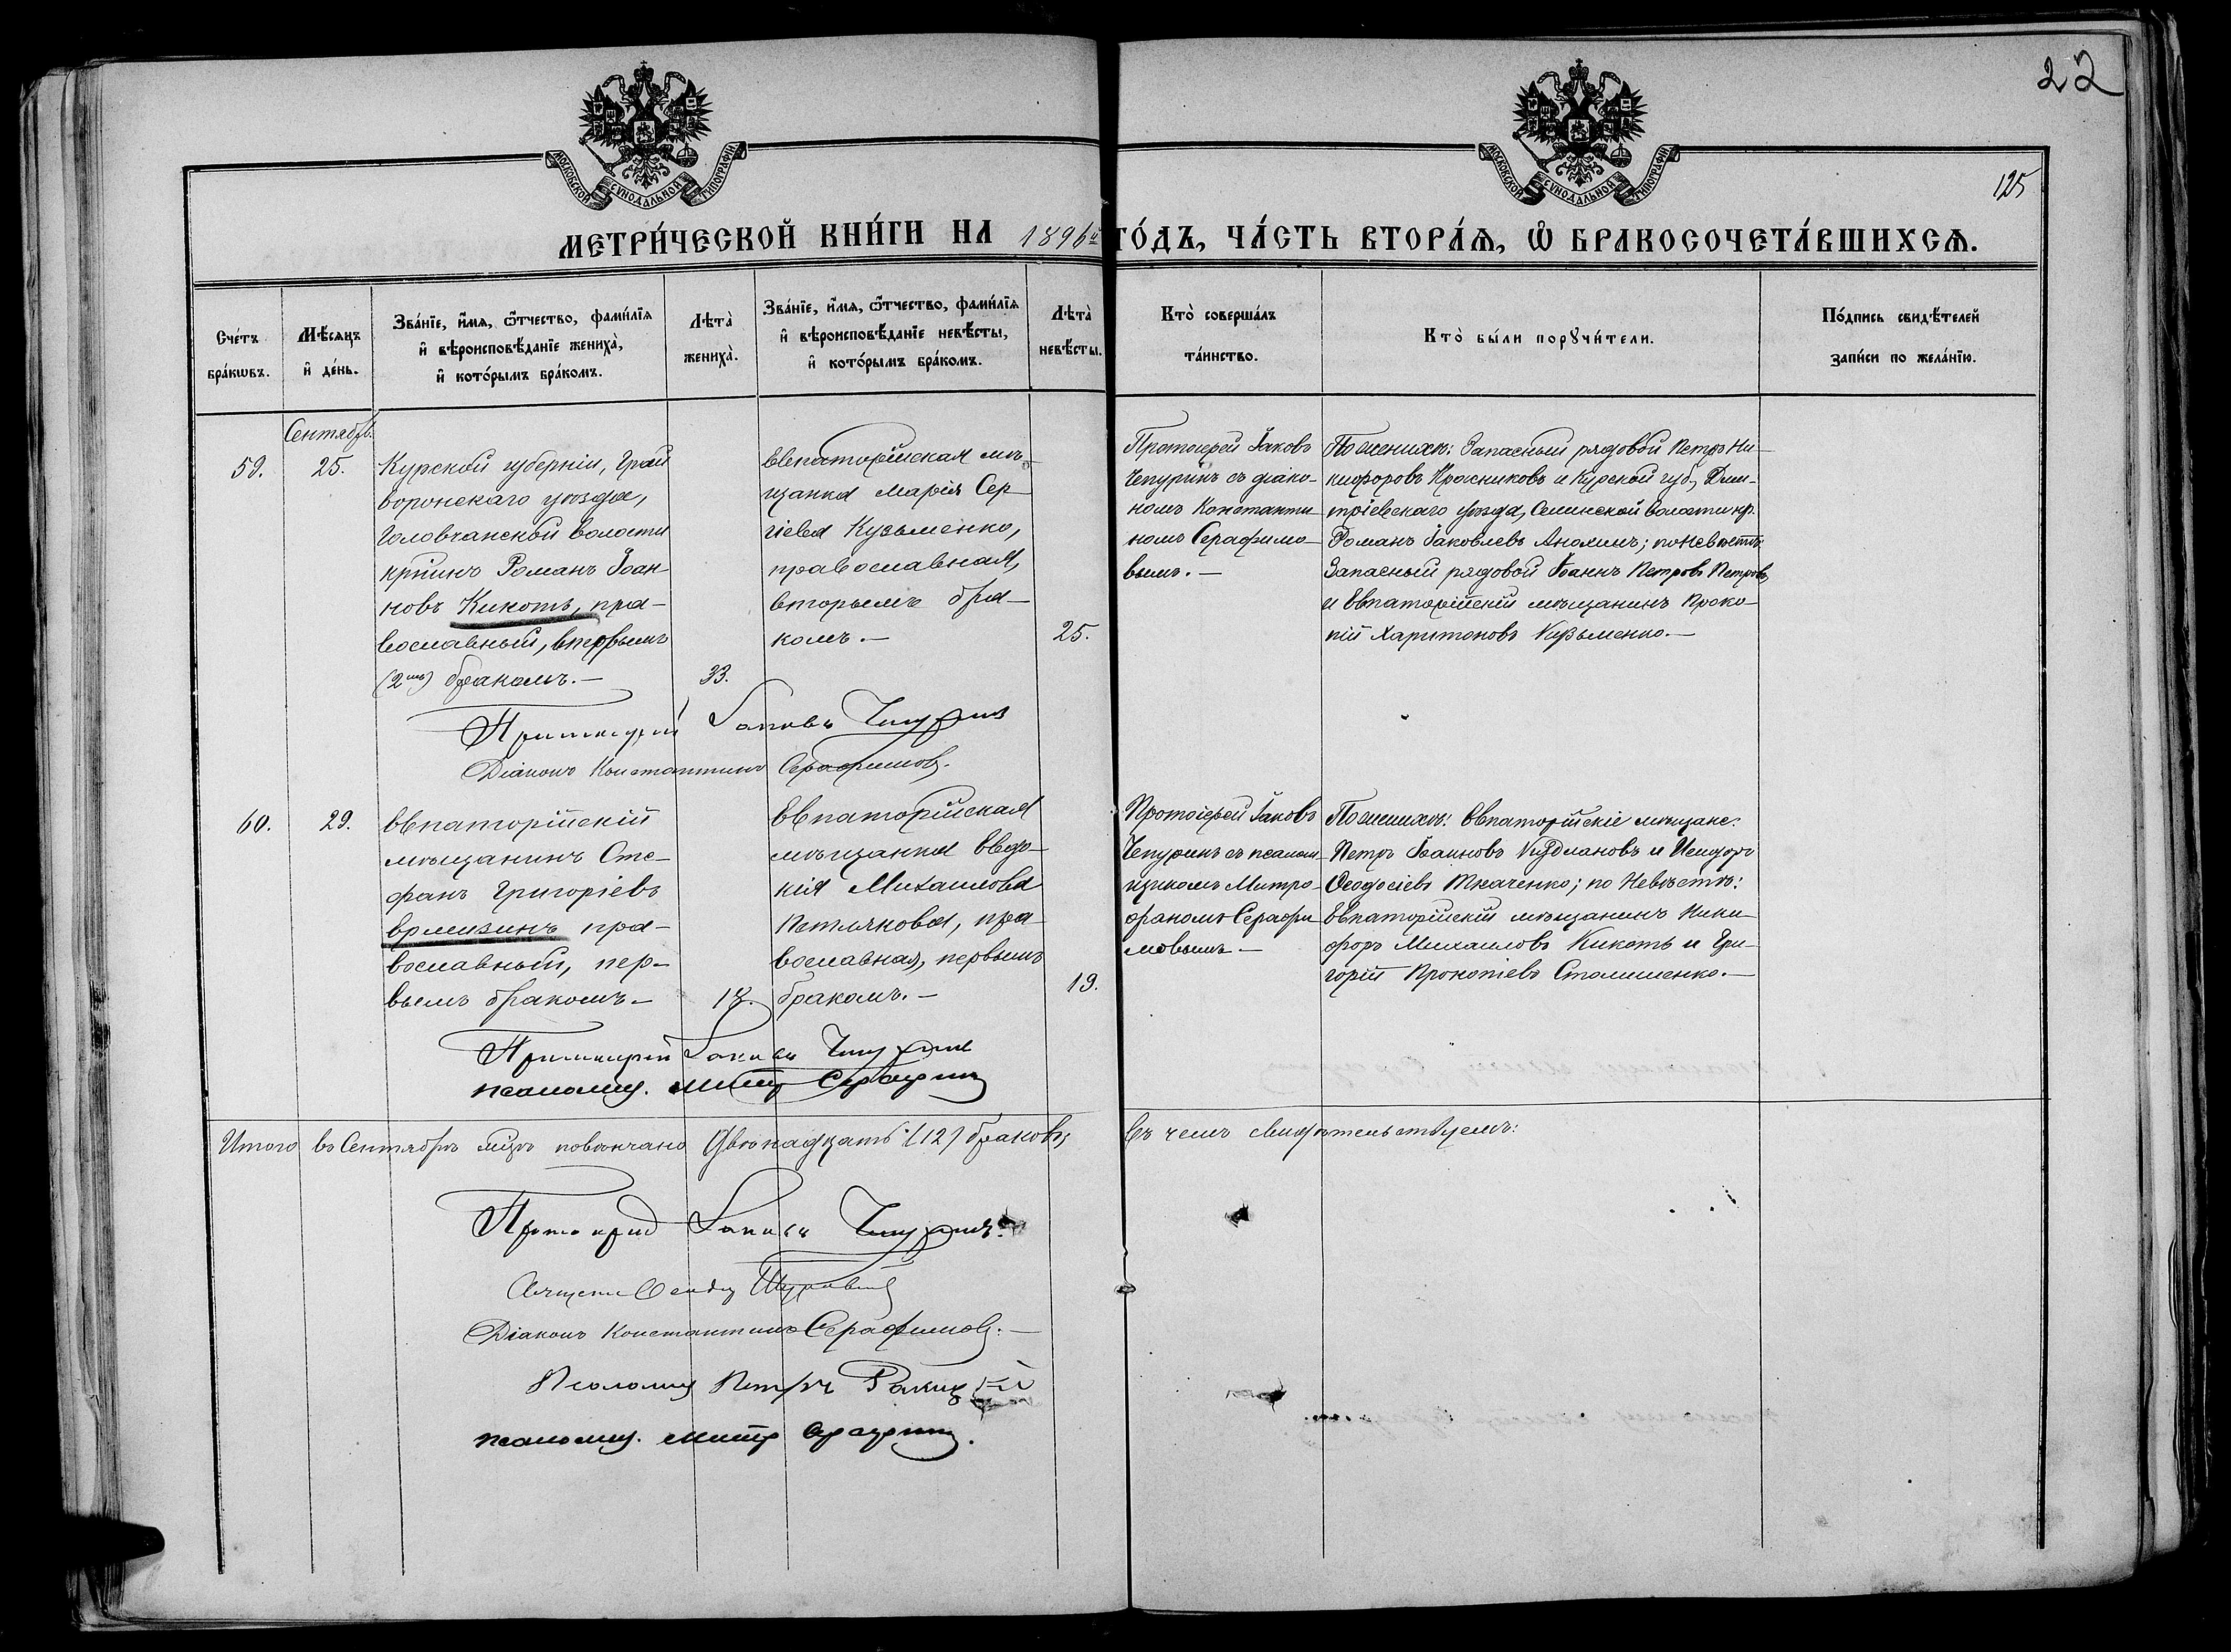 22
125
МОСКОВСКОЙ СѴНОДАЛЬНОЙ ТИПОГРАФІИ
МОСКОВСКОЙ СѴНОДАЛЬНОЙ ТИПОГРАФІИ
МЕТРИ́ЧЕСКОЙ КНИ́ГИ НА 1896й ГО́ДЪ, ЧА́СТЬ ВТОРА́Ѧ, Ѽ БРАКОСОЧЕТА́ВШИХСѦ.
Сче́тъ бра́кѡвъ.
Мѣ́сяцъ и҆ де́нь.
Зва́нїе, и҆́мѧ, ѻ҆́тчество, фами́лїѧ
и҆ вѣроисповѣ́данїе жениха̀,
и҆ кото́рымъ бра́комъ.
Лѣта̀ жениха̀.
Зва́нїе, и҆́мѧ, ѻ҆́тчество, фами́лїѧ
и҆ вѣроисповѣ́данїе невѣ́сты,
и҆ кото́рымъ бра́комъ.
Лѣта̀ невѣ́сты.
Кто̀ соверша́лъ
та́инство.
Кто̀ бы́ли порꙋчи́тели.
По́дпись свидѣ́телей
за́писи по жела́нїю.
Сентябрь.
59.
25.
Курской губерніи, Грай
воронскаго уѣзда,
Головчанской волости
кр̃нинъ Романъ Іоан
новъ Кикоть, пра-
вославный, вторымъ
(2мъ) бракомъ.—
33.
Евпаторійская мѣ-
щанка Марія Сер-
гіева Кузьменко,
православная,
вторымъ бра-
комъ.—
25.
Протоіерей Іаковъ
Чепуринъ съ діако-
номъ Константи-
номъ Серафимо-
вымъ.—
По женихѣ: Запасный рядовой Петръ Ни-
кифоровъ Красниковъ и Курской губ., Дми-
тріевскаго уѣзда, Селинской волости кр.
Романъ Іаковлевъ Анохинъ; по невѣстѣ:
Запасный рядовой Іоаннъ Петровъ Петровъ,
и Евпаторійскій мѣщанинъ Проко-
пій Харитоновъ Кузьменко.—
Протоіерей Іаковъ Чепуринъ
Діаконъ Константинъ Серафимовъ.
60.
29.
Евпаторійскій
мѣщанинъ Сте-
фанъ Григоріевъ
пра-
вославный, пер-
вымъ бракомъ.—
18.
Евпаторійская
мѣщанка Евдо-
кія Михаилова
Петлякова, пра-
вославная, первымъ
бракомъ.—
19.
Протоіерей Іаковъ
Чепуринъ съ псалом-
щикомъ Митро-
фаномъ Серафи
мовымъ.—
По женихѣ: Евпаторійскіе мѣщане:
Петръ Іоанновъ и Исидоръ
Ѳеодосіевъ Ткаченко; по Невѣстѣ:
Евпаторійскій мѣщанинъ Ники-
форъ Михаиловъ Кикоть и Гри-
горій Прокопіевъ
Протоіерей Іаковъ Чепуринъ
псаломщ. Митр. Серафимовъ
Итого въ Сентябрѣ м̃цѣ повѣнчано двѣнадцать (12) браковъ, въ чемъ свидѣтельствуемъ:
Протоіерей Іаковъ Чепуринъ.
Діаконъ Константинъ Серафимовъ.—
Псаломщ. Петръ
псаломщ. Митр. Серафимовъ.